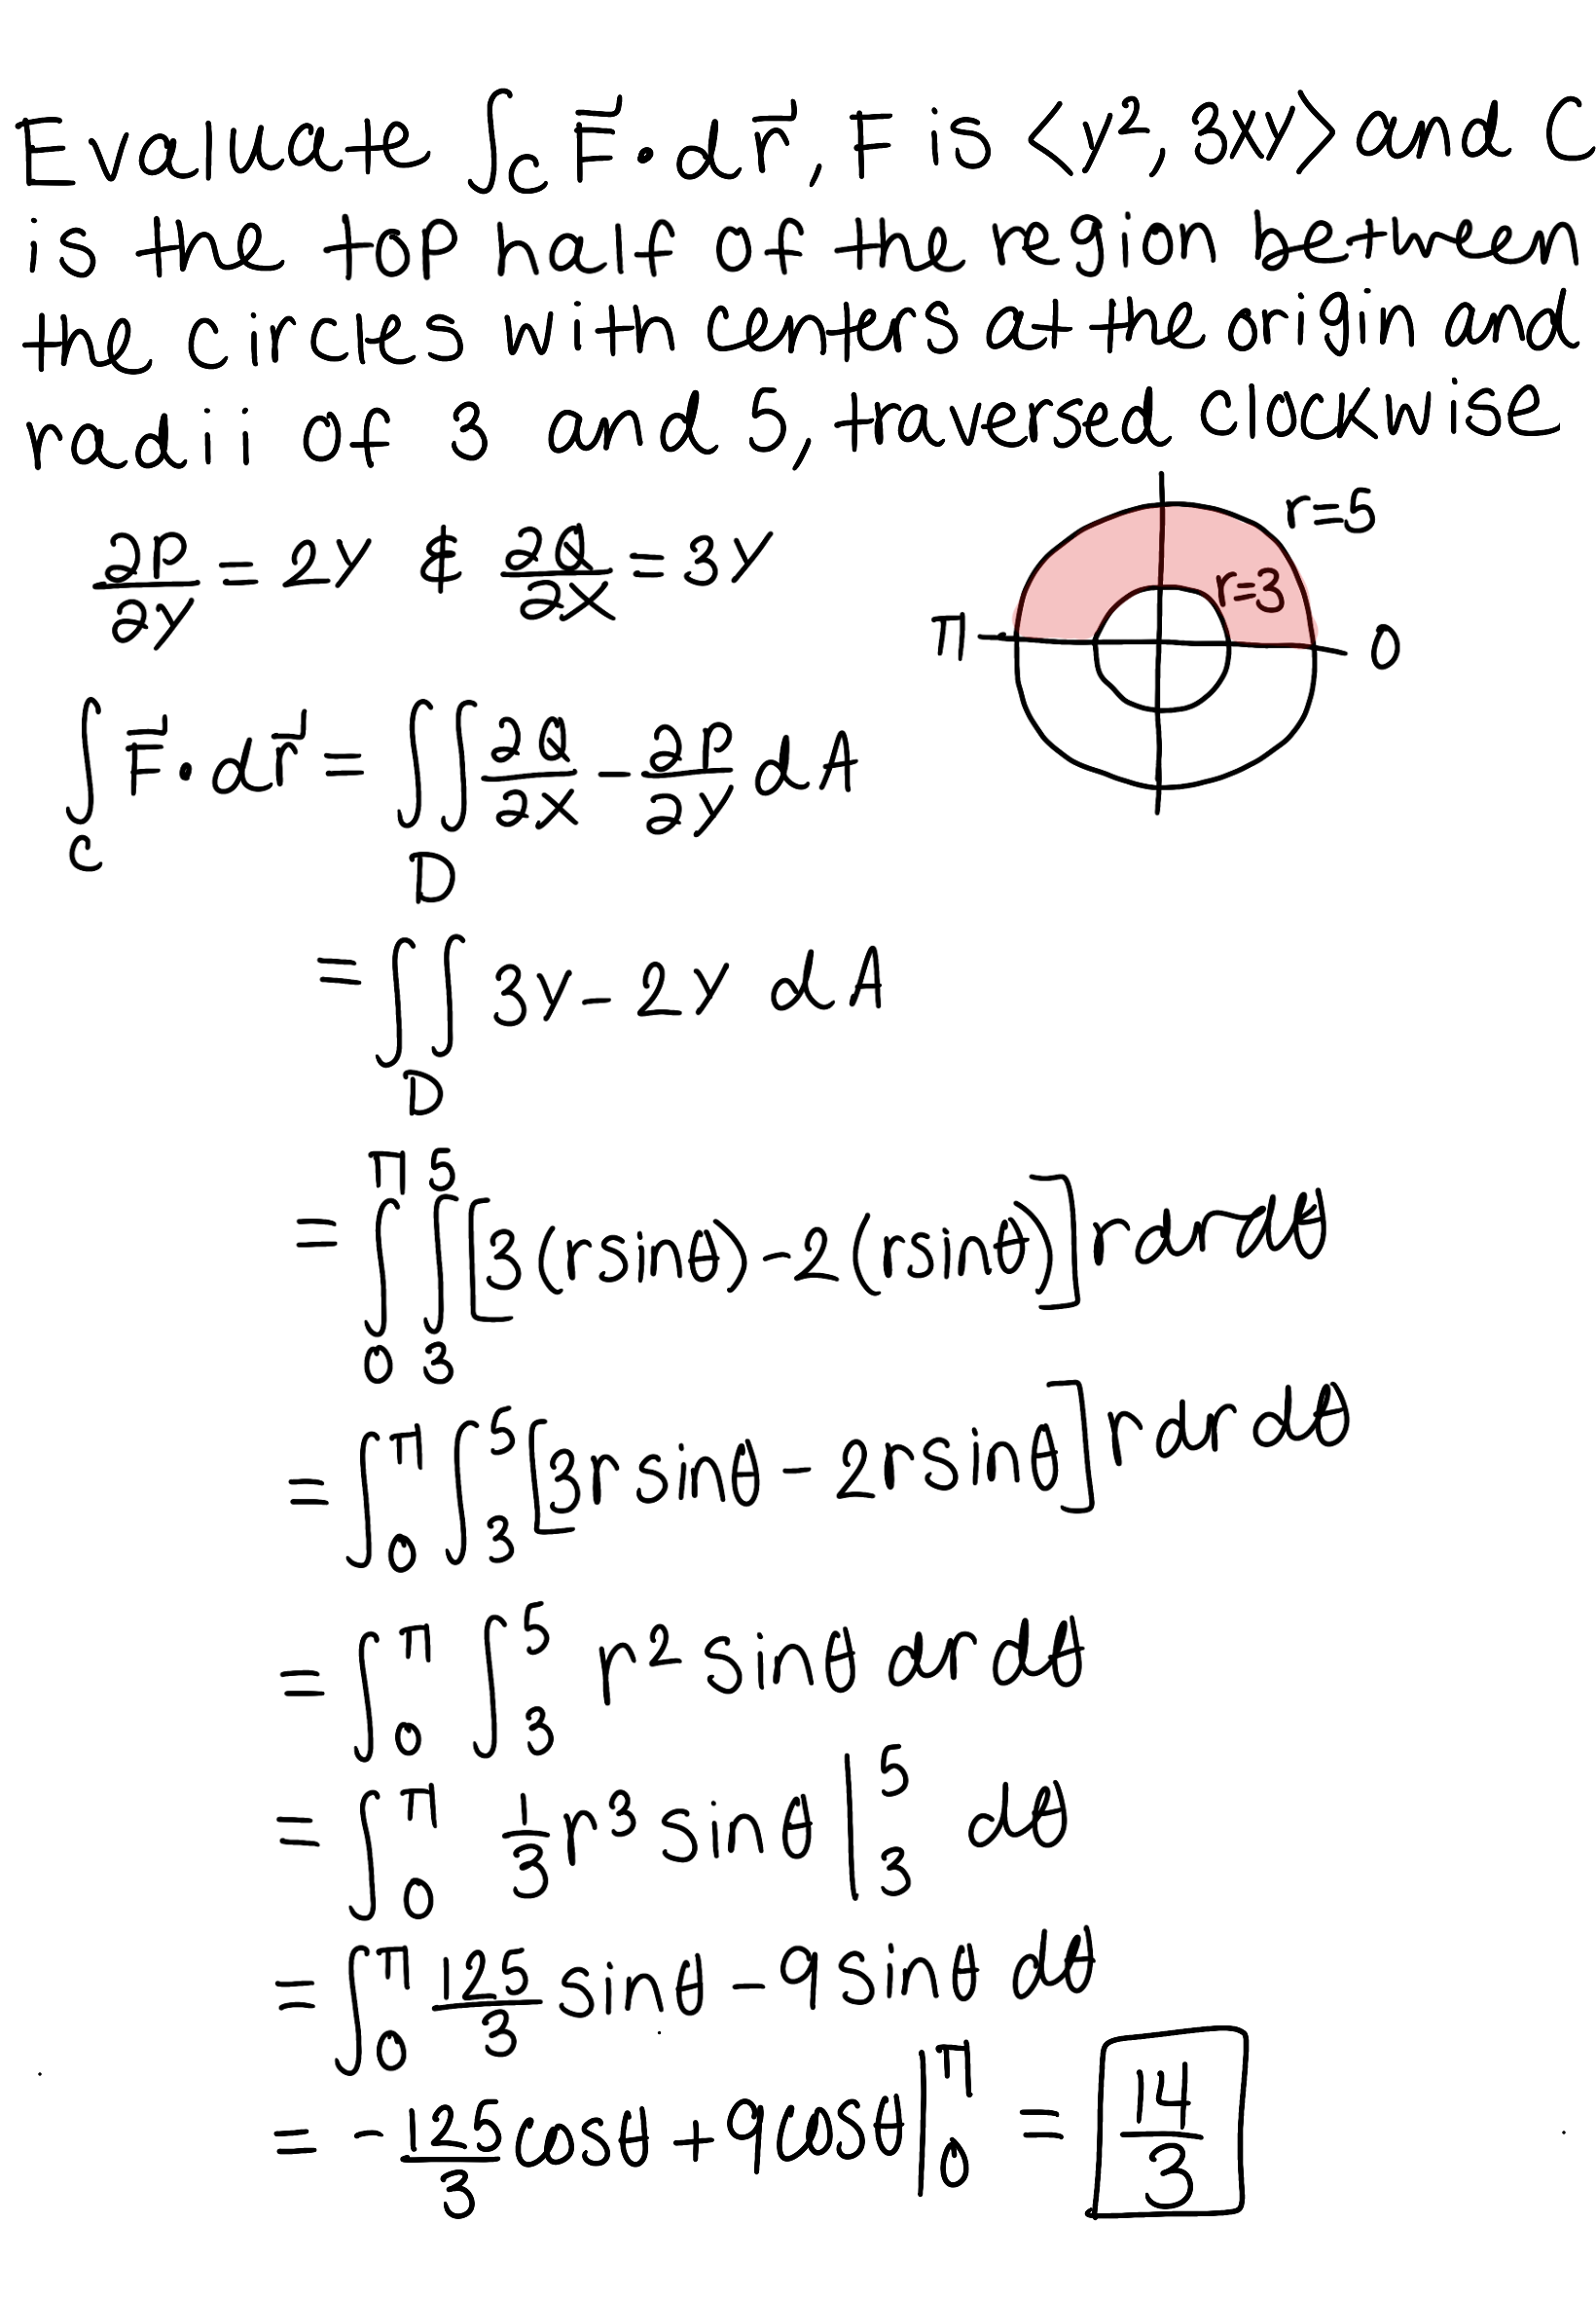 Evaluate ∫_C F⃗ • dr⃗, F is <y², 3xy> and C
is the top half of the region between
the circles with centers at the origin and
radii of 3 and 5, traversed clockwise
∂P/∂y = 2y & ∂Q/∂x = 3y
r=5
r=3
π
0
∫_C F⃗ • dr⃗ = ∬_D ∂Q/∂x - ∂P/∂y dA
= ∬_D 3y - 2y dA
= ∫_0^π ∫_3^5 [3(rsinθ) - 2(rsinθ)] r dr dθ
= ∫_0^π ∫_3^5 [3r sinθ - 2r sinθ] r dr dθ
= ∫_0^π ∫_3^5 r² sinθ dr dθ
= ∫_0^π 1/3 r³ sinθ |_3^5 dθ
= ∫_0^π 125/3 sinθ - 9 sinθ dθ
= -125/3 cosθ + 9cosθ |_0^π = 14/3